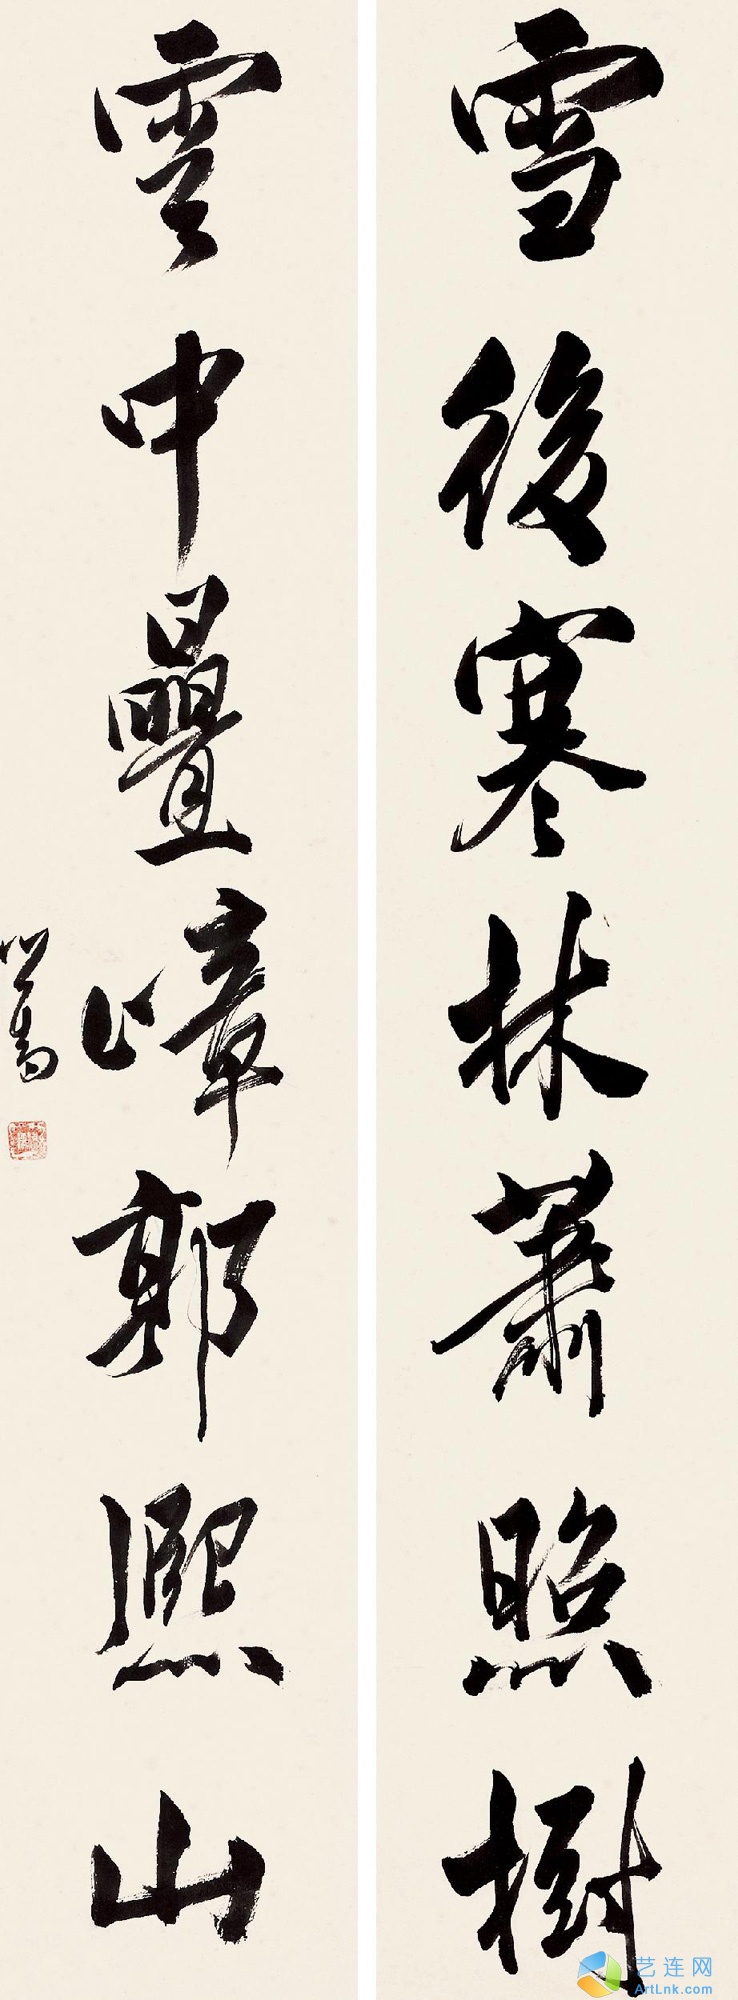 雪後寒林蕭照樹
雲中疊嶂郭熙山
心畬
艺连网
ArtLnk.com